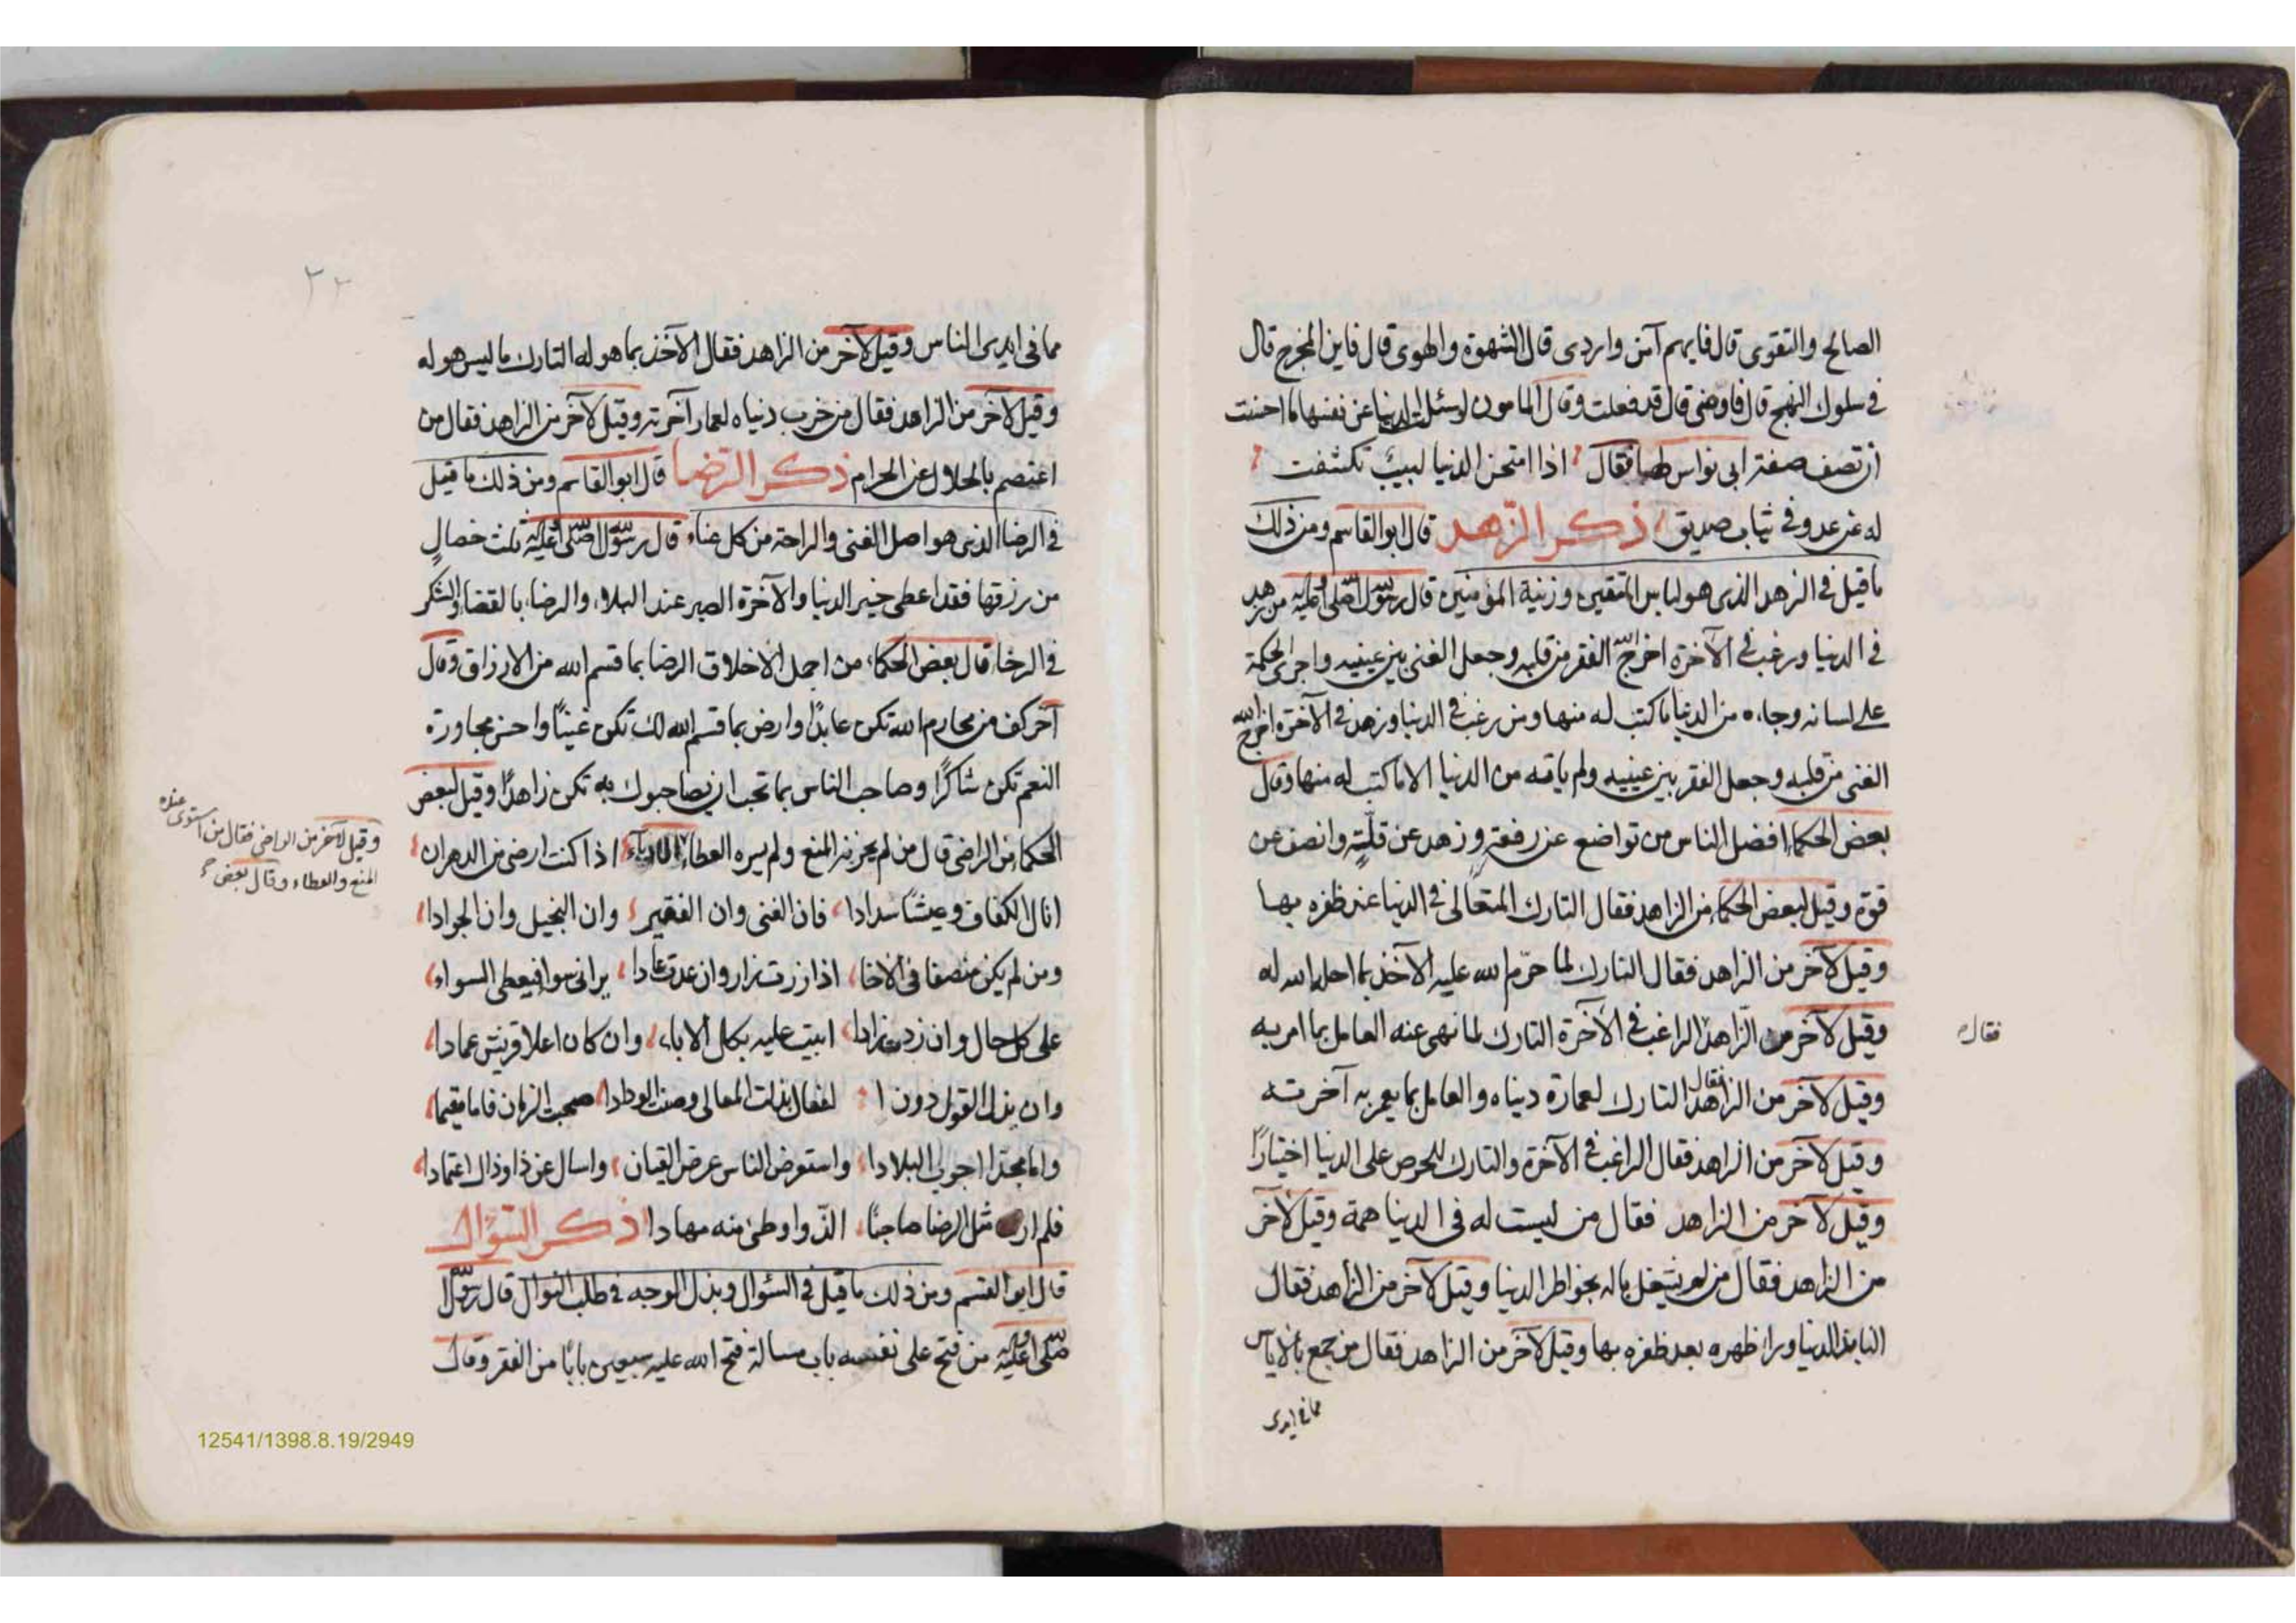 الصالح والتقوى قال فايهم آمن واردى قال الشهوة والهوى قال فاين المخرج قال
في سلوك النهج قال فاوضنى قال قد فعلت وقال المامون لو سئلت الدنيا عن نفسها ما احسنت
ان تصف صفة ابى نواس لها فقال اذا امتحن الدنيا لبيب تكشفت
له عن عدو في ثياب صديق ذكر الزهد قال ابو القاسم ومن ذلك
ما قيل في الزهد الذى هو لباس المتقين وزنية المؤمنين قال رسول الله صلى الله عليه وآله من زهد
في الدنيا ورغب في الآخرة اخرج الله الفقر من قلبه وجعل الغنى بين عينيه واجرى الحكمة
على لسانه وجاءه من الدنيا ما كتب له منها ومن رغب في الدنيا وزهد في الآخرة اخرج الله
الغنى من قلبه وجعل الفقر بين عينيه ولم ياته من الدنيا الا ما كتب له منها وقال
بعض الحكماء افضل الناس من تواضع عن رفعة وزهد عن قلّة وانصف عن
قوة وقيل لبعض الحكماء من الزاهد فقال التارك المتعالى في الدنيا عند ظفره بها
وقيل لآخر من الزاهد فقال التارك لما حرّم الله عليه الآخذ بما احل الله له
وقيل لآخر من الزاهد الراغب في الآخرة التارك لما نهى عنه العامل بما امر به
فقال
وقيل لآخر من الزاهد فقال التارك لعمارة دنياه والعامل بما يعمر به آخرته
وقيل لآخر من الزاهد فقال الراغب في الآخرة والتارك للحرص على الدنيا اختيارًا
وقيل لآخر من الزاهد فقال من ليست له في الدنيا همة وقيل لآخر
من الزاهد فقال من لم يشغل باله بخواطر الدنيا وقيل لآخر من الزاهد فقال
النابذ الدنيا ورا ظهره بعد ظفره بها وقيل لآخر من الزاهد فقال من جمع بالاياس
مما في ايدى
٣٢
مما في ايدى الناس وقيل لآخر من الزاهد فقال الآخذ بما هو له التارك ما ليس هو له
وقيل لآخر من الزاهد فقال من خرب دنياه لعمار آخرته وقيل لآخر من الزاهد فقال من
اعتصم بالحلال عن الحرام ذكر الرضا قال ابو القاسم ومن ذلك ما قيل
في الرضا الذى هو اصل الغنى والراحة من كل عناء قال رسول الله صلى الله عليه وآله ثلث خصال
من رزقها فقد اعطى خير الدنيا والآخرة الصبر عند البلاء والرضاء بالقضاء والشكر
في الرخاء قال بعض الحكماء من اجمل الاخلاق الرضا بما قسم الله من الارزاق وقال
آخر كف من محارم الله تكن عابدًا وارض بما قسم الله لك تكن غنيًا واحسن مجاورة
النعم تكن شاكرًا وصاحب الناس بما تحب ان يصاحبوك به تكن زاهدًا وقيل لبعض
الحكماء من الراضى قال من لم يحزنه المنع ولم يسره العطاء اذا كنت ارضى من الدهر ان
وقيل لآخر من الراضى فقال من استوى عنده
المنع والعطاء وقال بعض
انال الكفاف وعيشًا سدادا فان الغنى وان الفقير وان البخيل وان الجوادا
ومن لم يكن منصفا في الاخا اذا زرت زار وان عدت عادا يرانى سوا فيعطى السواء
على كل حال وان زدت زادا ابيت عليه بكل الاباء وان كان اعلا قريش عمادا
وان بذل القول دون الفعال بذلت المعالى وصنت الودادا صحبت الزمان فاما مقيما
واما مجدا اجوب البلادا واستعرض الناس عرض القيان واسال عن ذا وذاك اعتمادا
فلم ار مثل الرضا صاحبًا الذ واوطئ منه مهادا ذكر السؤال
قال ابو القسم ومن ذلك ما قيل في السئوال وبذل الوجه في طلب النوال قال رسول الله
صلى الله عليه وآله من فتح على نفسه باب مسالة فتح الله عليه سبعين بابًا من الفقر وقال
12541/1398.8.19/2949